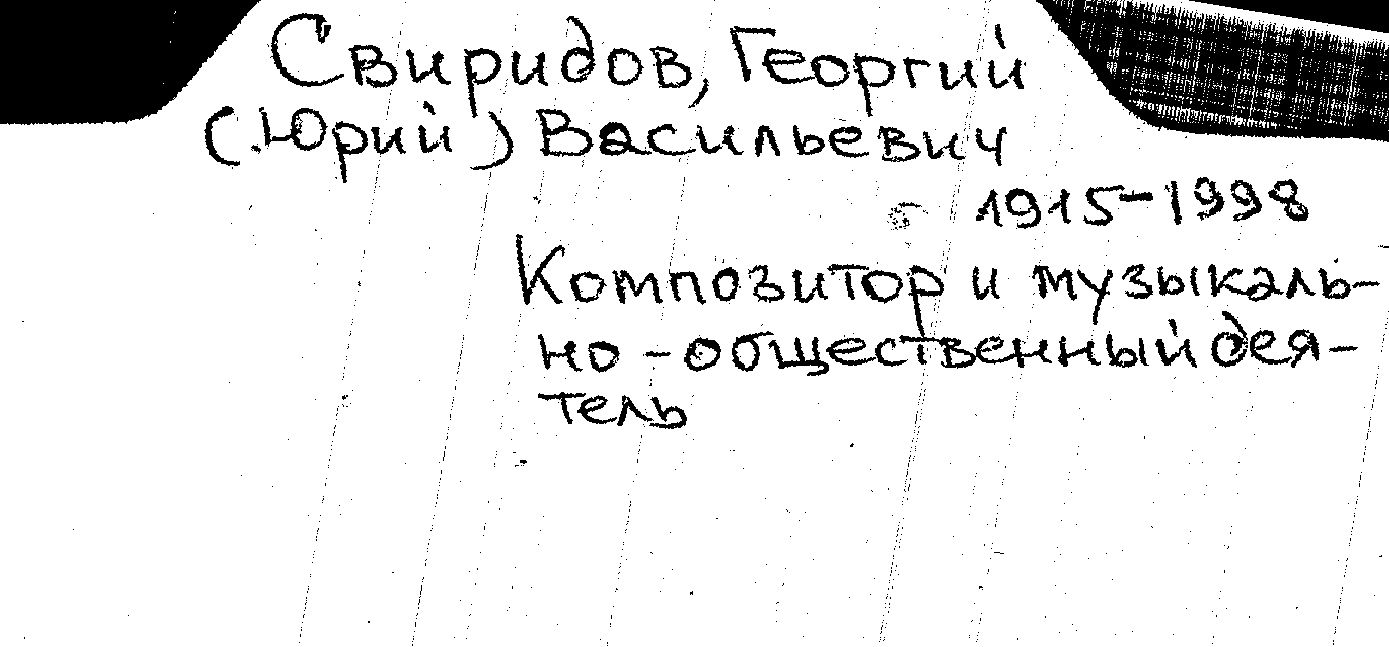 Свиридов, Георгий
(Юрий) Васильевич
1915-1998
Композитор и музыкаль-
но-общественный дея-
тель